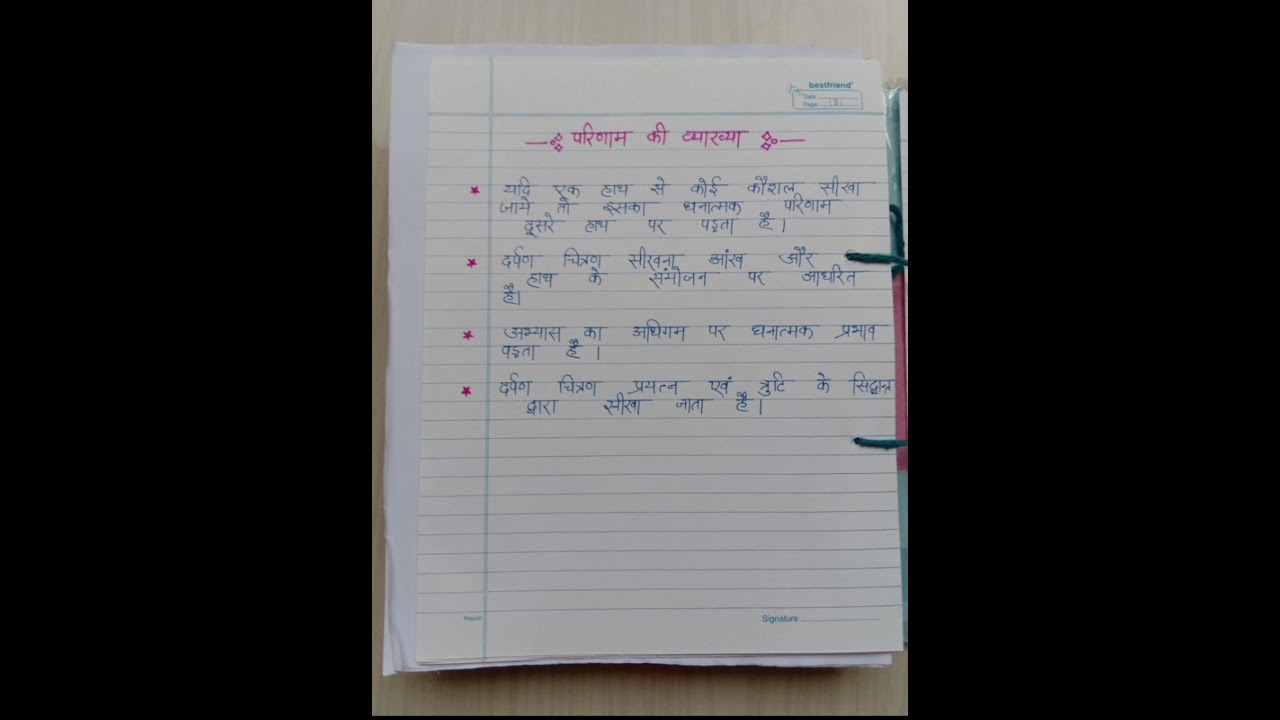 bestfriend
Date
Page
परिणाम की व्याख्या
यदि एक हाथ से कोई कौशल सीखा
जाये तो इसका धनात्मक परिणाम
दूसरे हाथ पर पड़ता है।
दर्पण चित्रण सीखना आंख और
हाथ के संयोजन पर आधरित
है।
अभ्यास का अधिगम पर धनात्मक प्रभाव
पड़ता है।
दर्पण चित्रण प्रयत्न एवं त्रुटि के सिद्धान्त
द्वारा सीखा जाता है।
Regular
Signature